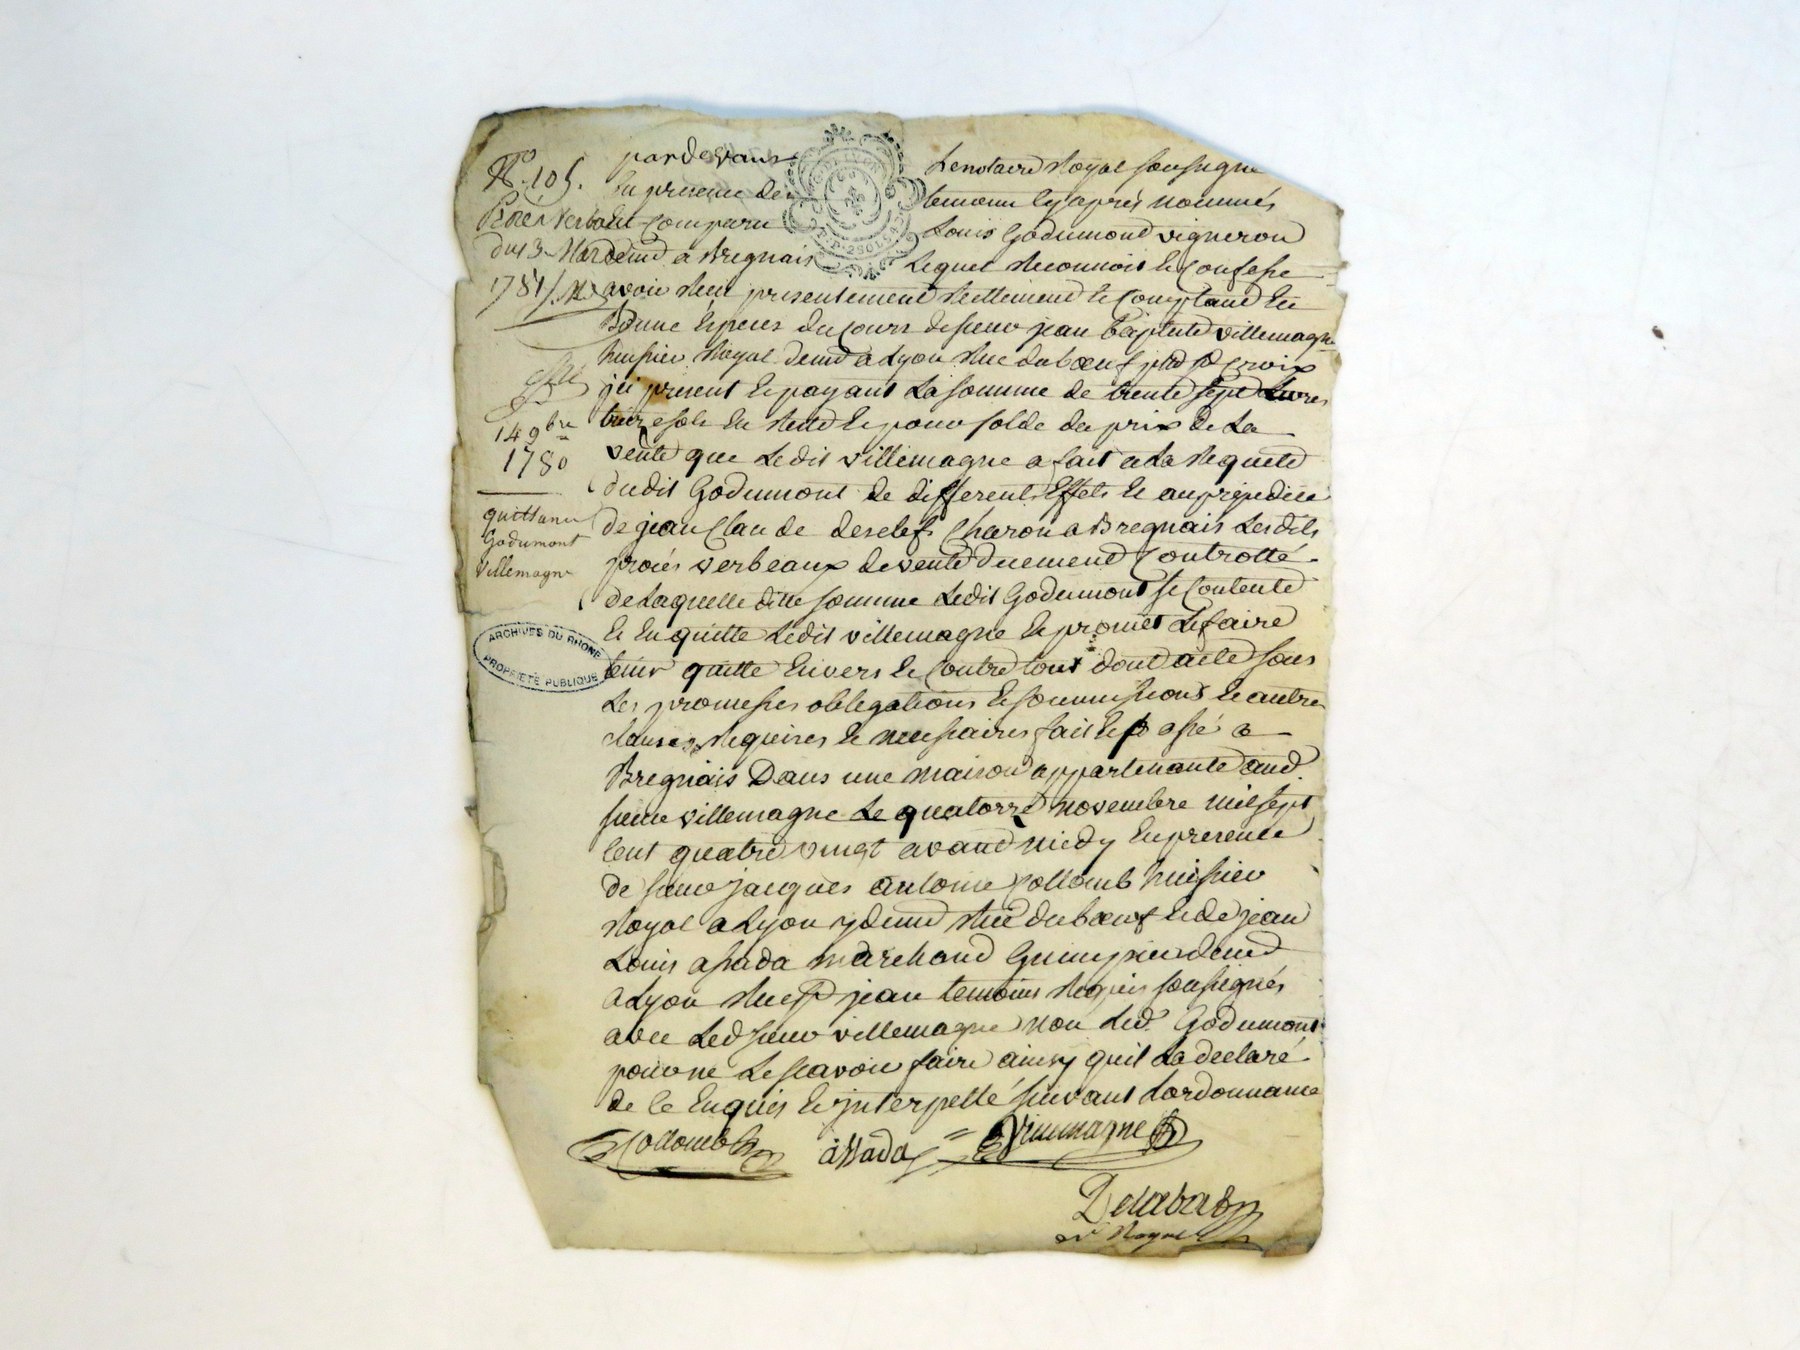 N.° 105.
Procés verbal
du 3 Mars
1781
14 9bre
1780
quittance
Godumont
villemagne
ARCHIVES DU RHONE
PROPRIÉTÉ PUBLIQUE
pardevant Le notaire Royal soussigné
En presence des temoins cy après nommés
Comparu Louis Godumont vigneron
demt a Bregnais Lequel Reconnois et Confesse
avoir Recu presentement Reellement et Comptant En
Bonne Especes du Cours de sieur jean baptiste villemagne
huissier Royal demt a Lyon Rue du boeuf psse ste Croix
jci present et payant La somme de trente sept Livres
treize sols En Reste et pour solde du prix de La
vente que Ledit villemagne a fait a La Requete
dudit Godumont de differents Effets et au prejudice
de jean Claude desclefs Charon a Bregnais Lesdits
procés verbeaux de vente duement Controllé
de Laquelle ditte somme Ledit Godumont se Contente
Et En quitte Ledit villemagne et promet Le faire
tenir quitte Envers et Contre tous dont acte sous
Les promesses obligations et soumissions et autres
clauses Requises et necessaires fait et passé a
Bregnais Dans une maison appartenante aud.
sieur villemagne Le quatorze novembre mil sept
Cent quatre vingt avant midy En presence
de sieur jacques antoine Collomb huissier
Royal a Lyon y demt Rue du boeuf et de jean
Louis assada marchand Guimpier demt
a Lyon Rue st jean temoins Requis soussignés
avec Led sieur villemagne non Led. Godumont
pour ne Le scavoir faire ainsy quil La declaré
de ce Enquis et jnterpellé suivant Lordonnance
Collomb assada Villemagne
Delabat
nre Royal